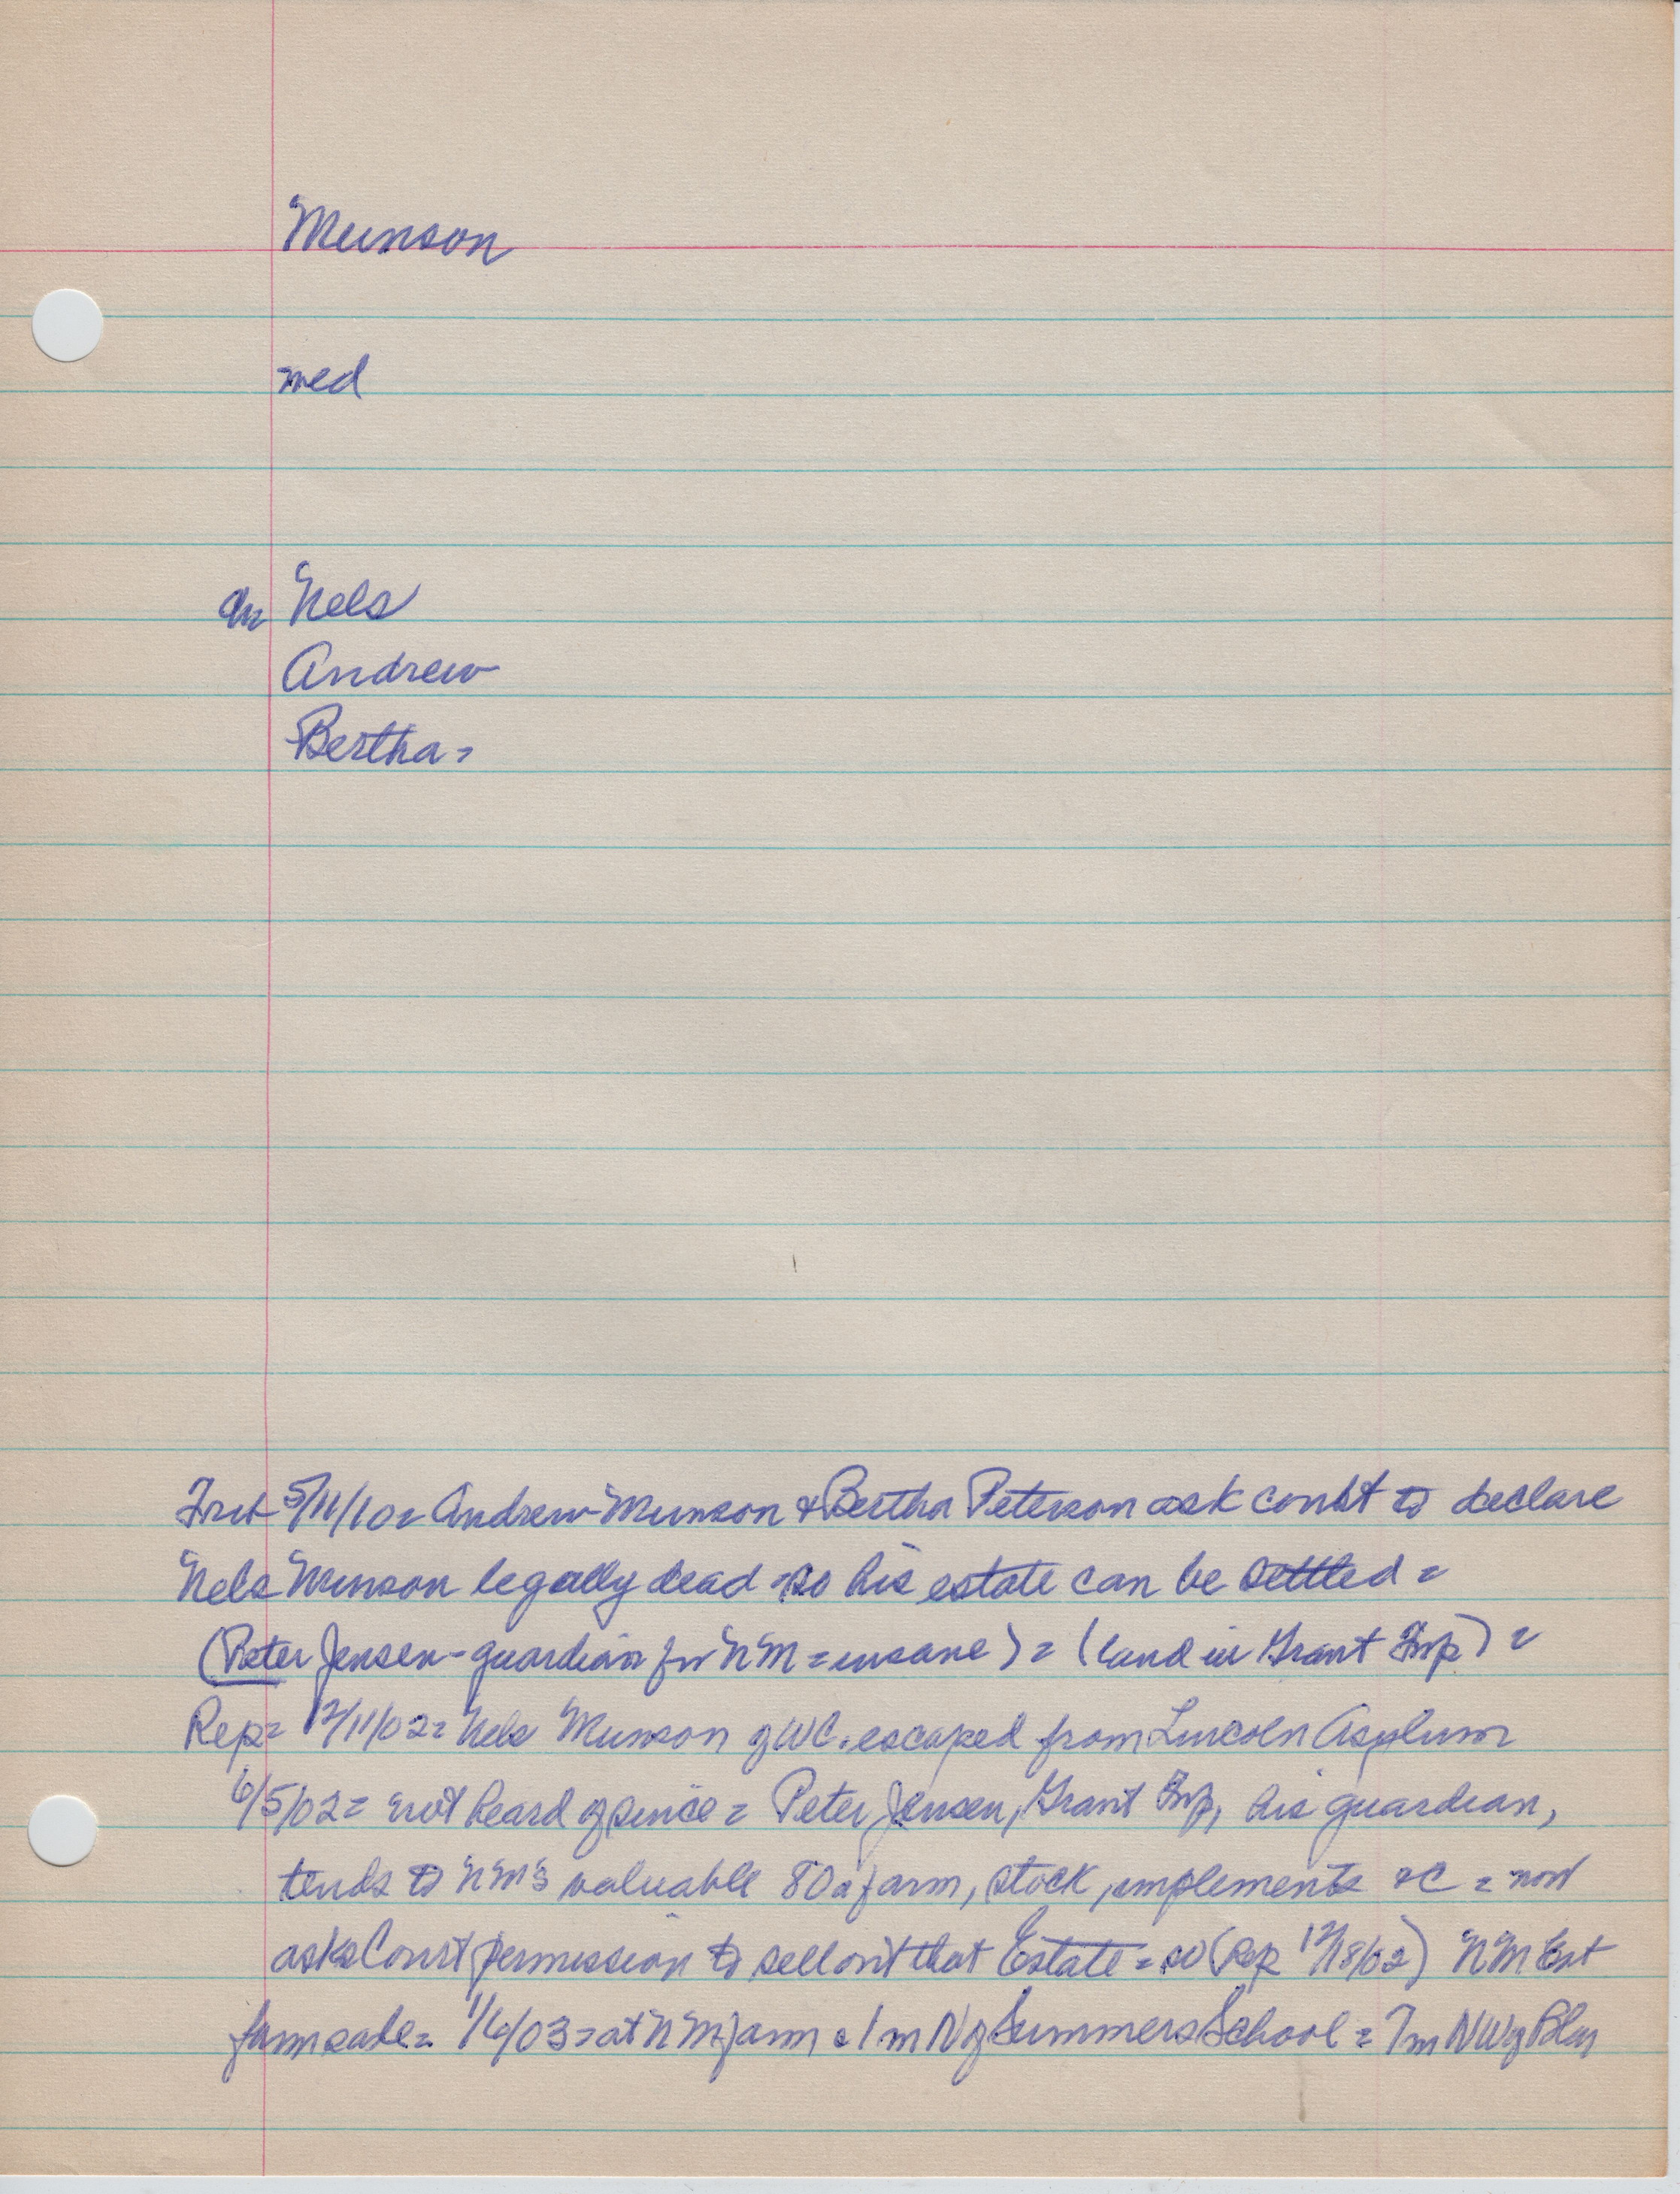 Munson
med
Nels
Andrew
Bertha =
5/11/10 = Andrew Munson & Bertha Peterson ask court to declare
Nels Munson legally dead = so his estate can be settled =
(Peter Jensen - guardian for NM = insane) = (land in Grant Twp) =
Rep = 12/11/02 = Nels Munson of WC. escaped from Lincoln Asylum
6/5/02 = not heard of since = Peter Jensen, Grant Twp, his guardian,
tends to NM's valuable 80a farm, stock, implements &C = now
asks Court permission to sell out that Estate = so (Rep 12/18/02) NM Est
farm sale = 1/6/03 = at NM farm = 1 m N of Summers School = 7 m NW of Blair